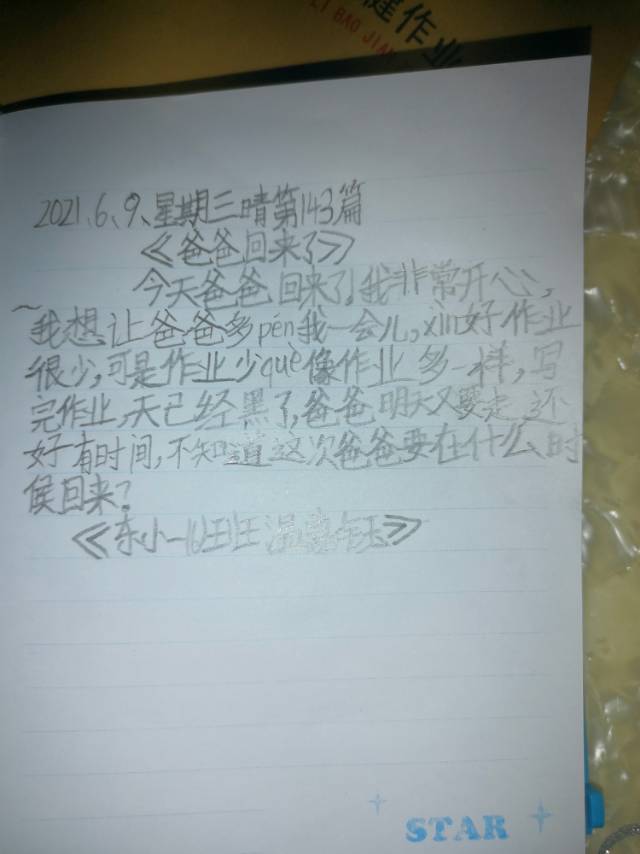 健作业
LI BAO JIAN
2021、6、9、星期三晴第143篇
《爸爸回来了》
今天爸爸回来了,我非常开心,
我想让爸爸多pén我一会儿,xìn好作业
很少,可是作业少què像作业多一样,写
完作业,天已经黑了,爸爸明天又要走,还
好有时间,不知道这次爸爸要在什么时
候回来?
《东小一(6)班
STAR